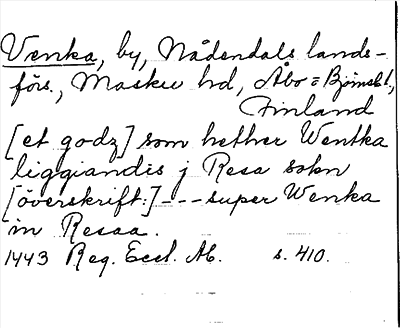 Venka, by, Nådendals lands-
förs., Masku hd, Åbo = Björnebl.,
Finland
[et godz] som hether Wentka
liggiandis j Resa sokn
[överskrift:] --- super Wenka
in Resaa.
1443 Reg. Eccl. Ab. s. 410.